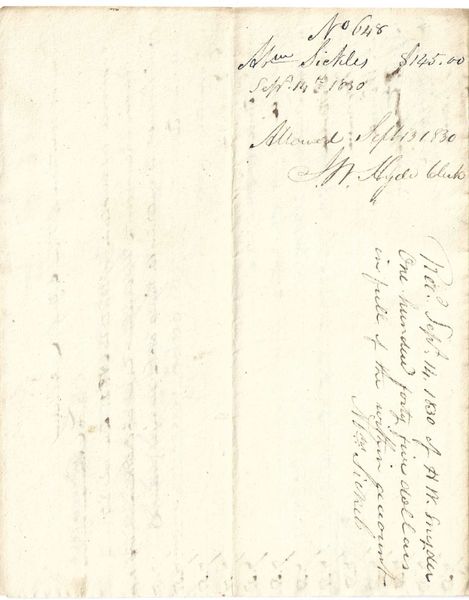 No 648
Abm Sickles $145.00
Sept. 14th 1830
Allowed Sept 13 1830
J W. Hyde Clerk
Recd. Sept. 14. 1830 of H W. Snyder
One hundred forty five dollars
in full of the within account
Abm Sickels